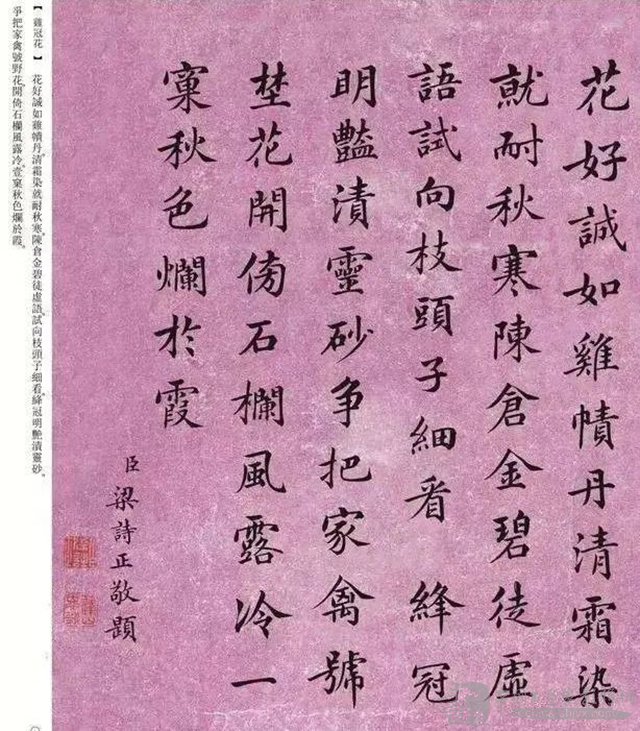 花好誠如雞幘丹清霜染
就耐秋寒陳倉金碧徒虛
語試向枝頭子細看 絳冠
明豔漬靈砂争把家禽號
埜花開傍石欄風露冷一
窠秋色爛於霞
臣梁詩正敬題
【雞冠花】 花好誠如雞幘丹。清霜染就耐秋寒。陳倉金碧徒虛語。試向枝頭子細看。絳冠明艷漬靈砂。
爭把家禽號野花。開倚石欄風露冷。壹窠秋色爛於霞。